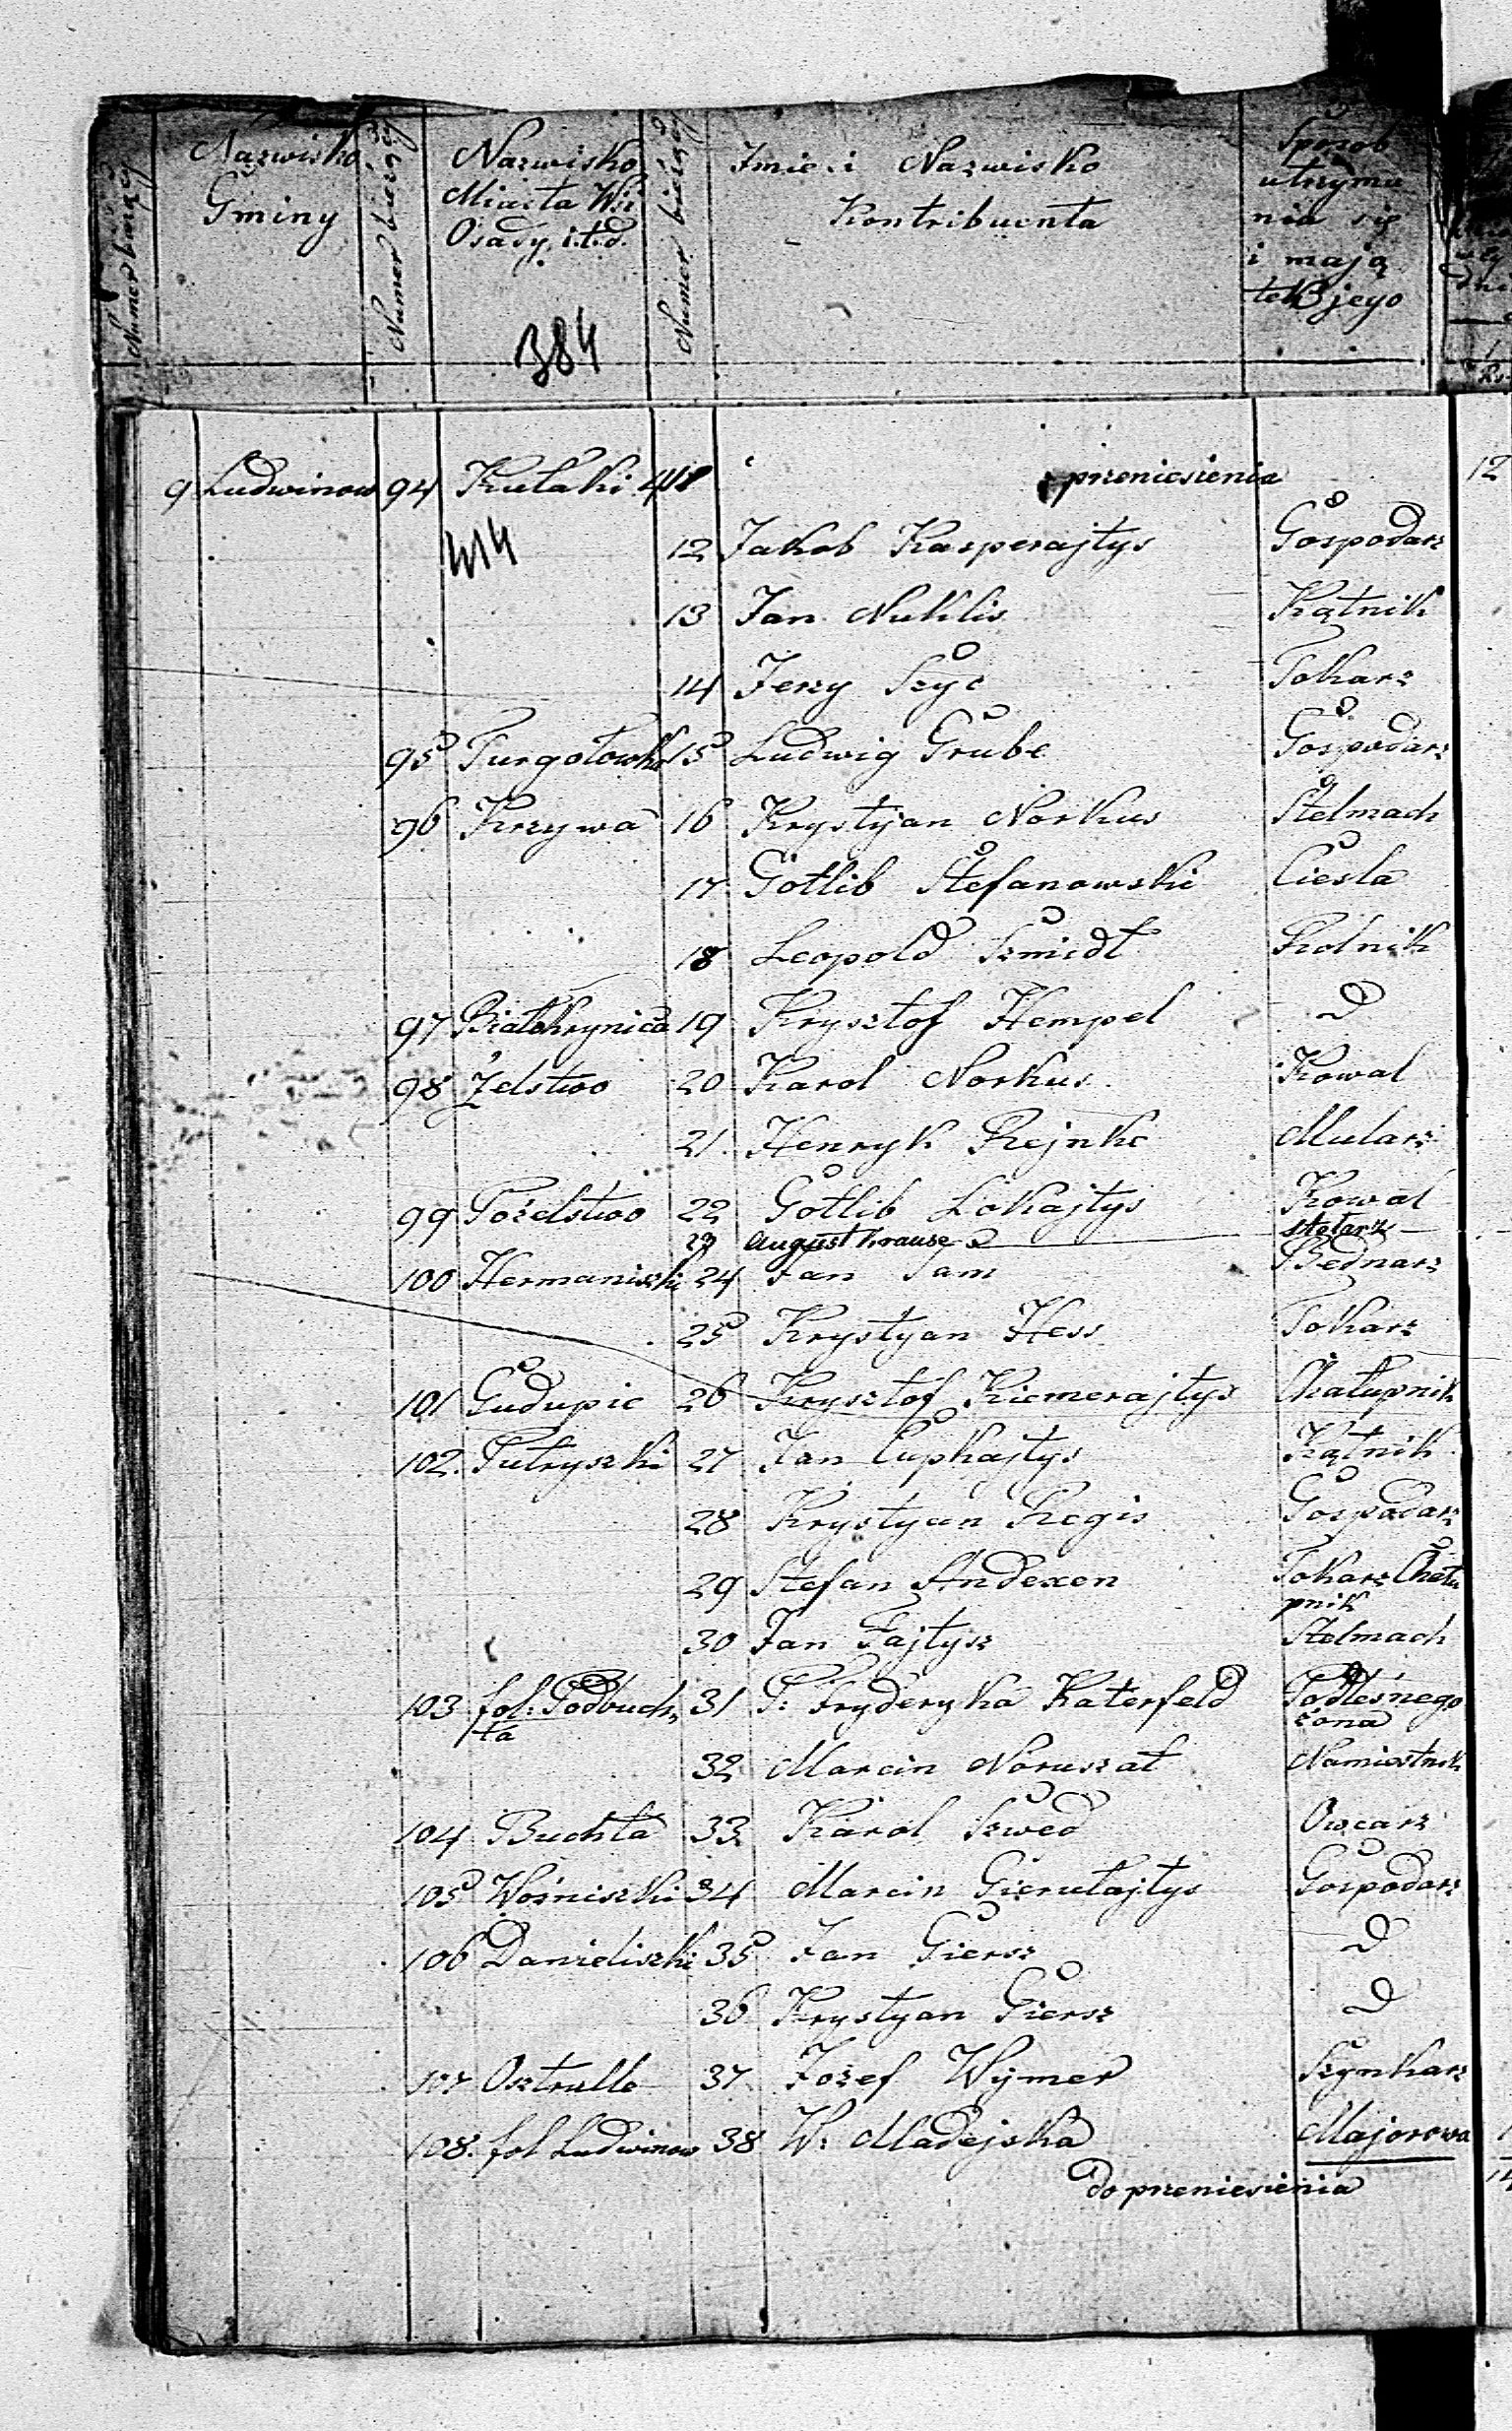 Numer bieżący
Nazwisko Gminy
Numer bieżący
Nazwisko Miasta Wsi Osady, i.t.d.
Numer bieżący
Imie i Nazwisko Kontribuenta
Sposob utrzyma nia się i mają tek jego
384
9 Ludwinow 94 Kułaki z przeniesienia 12
414
12 Jakob Kasperajtys Gospodarz
13 Jan Nuklis Kątnik
14 Jerzy Szyc Tokarz
95 Turgołowka 15 Ludwig Grube Gospodarz
96 Krzywa 16 Krystyan Norkus Stelmach
17 Gotlib Stefanowski Ciesla
18 Leopold Szmidt Rolnik
97 Białokrynica 19 Krysztof Hempel D
98 Żelstwo 20 Karol Norkus Kowal
21 Henryk Rejnke Mularz
99 Pożelstwo 22 Gotlib Lokajtys Kowal
23 August Krause Stolarz
100 Hermaniszki 24 Jan Tam Bednarz
25 Krystyan Hess Tokarz
101 Gudupie 26 Krysztof Kiemerajtys Chałupnik
102. Putryszki 27 Jan Cupkajtys Kątnik
28 Krystyan Regis Gospodarz
29 Stefan Andexen Tokarz Chału
pnik
30 Jan Fajtysz Stelmach
103 fol: Podbuch 31 P: Fryderyka Katerfeld Podleśnego
ta żona
32 Marcin Noruszat Namiestnik
104 Buchta 33 Karol Szwed Owcarz
105 Woźniszki 34 Marcin Gierułajtys Gospodarz
106 Danieliszki 35 Jan Giersz D
36 Krystyan Giersz D
107 Osztrulle 37 Jozef Wymer Szynkarz
108. fol Ludwinow 38 W: Madejska Majorowa
do przeniesienia